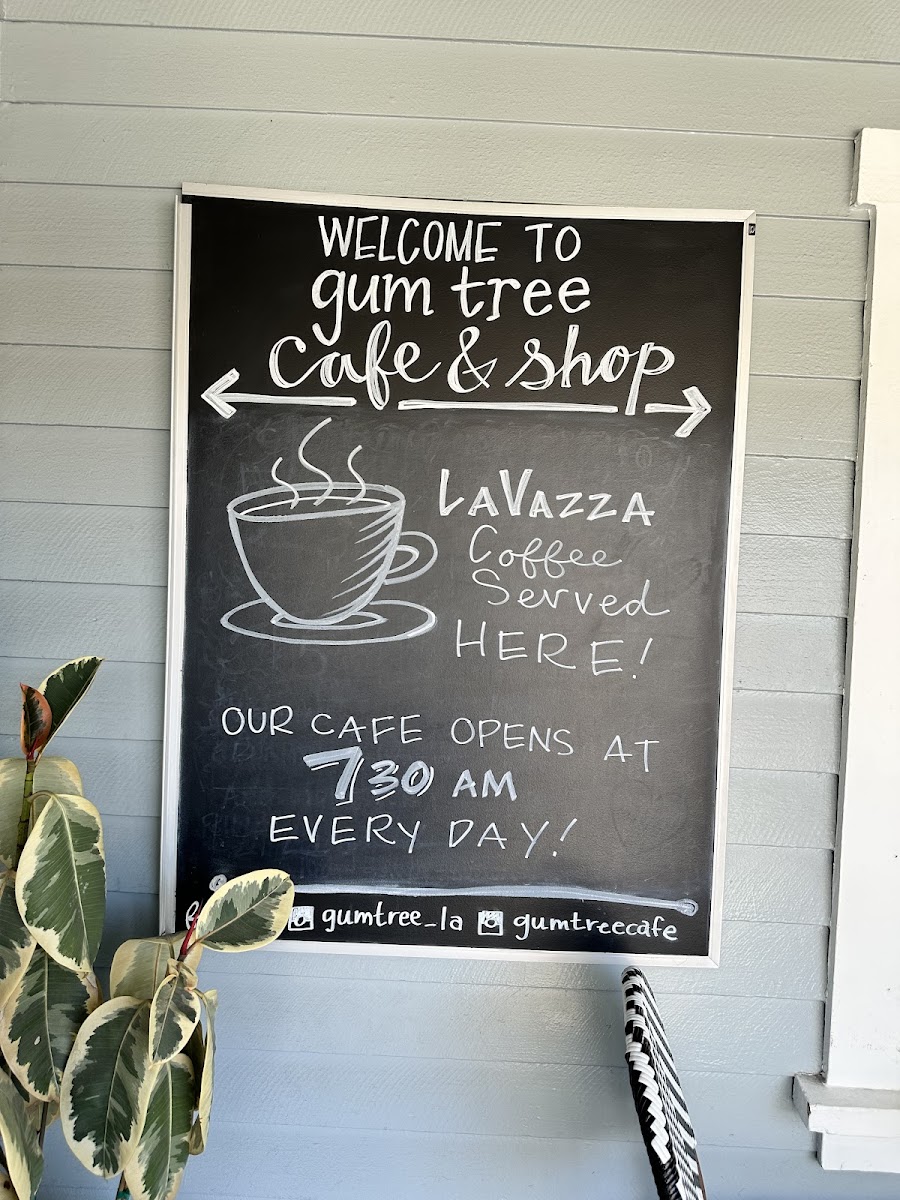 WELCOME TO
gum tree
cafe & shop
LAVAZZA
Coffee
Served
HERE!
OUR CAFE OPENS AT
730 AM
EVERY DAY!
gumtree_la gumtreecafe